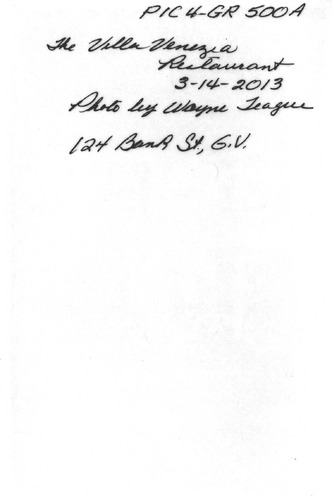 PIC 4-GR 500A
The Villa Venezia
Restaurant
3-14-2013
Photo by Wayne Teague
124 Bank St, G.V.